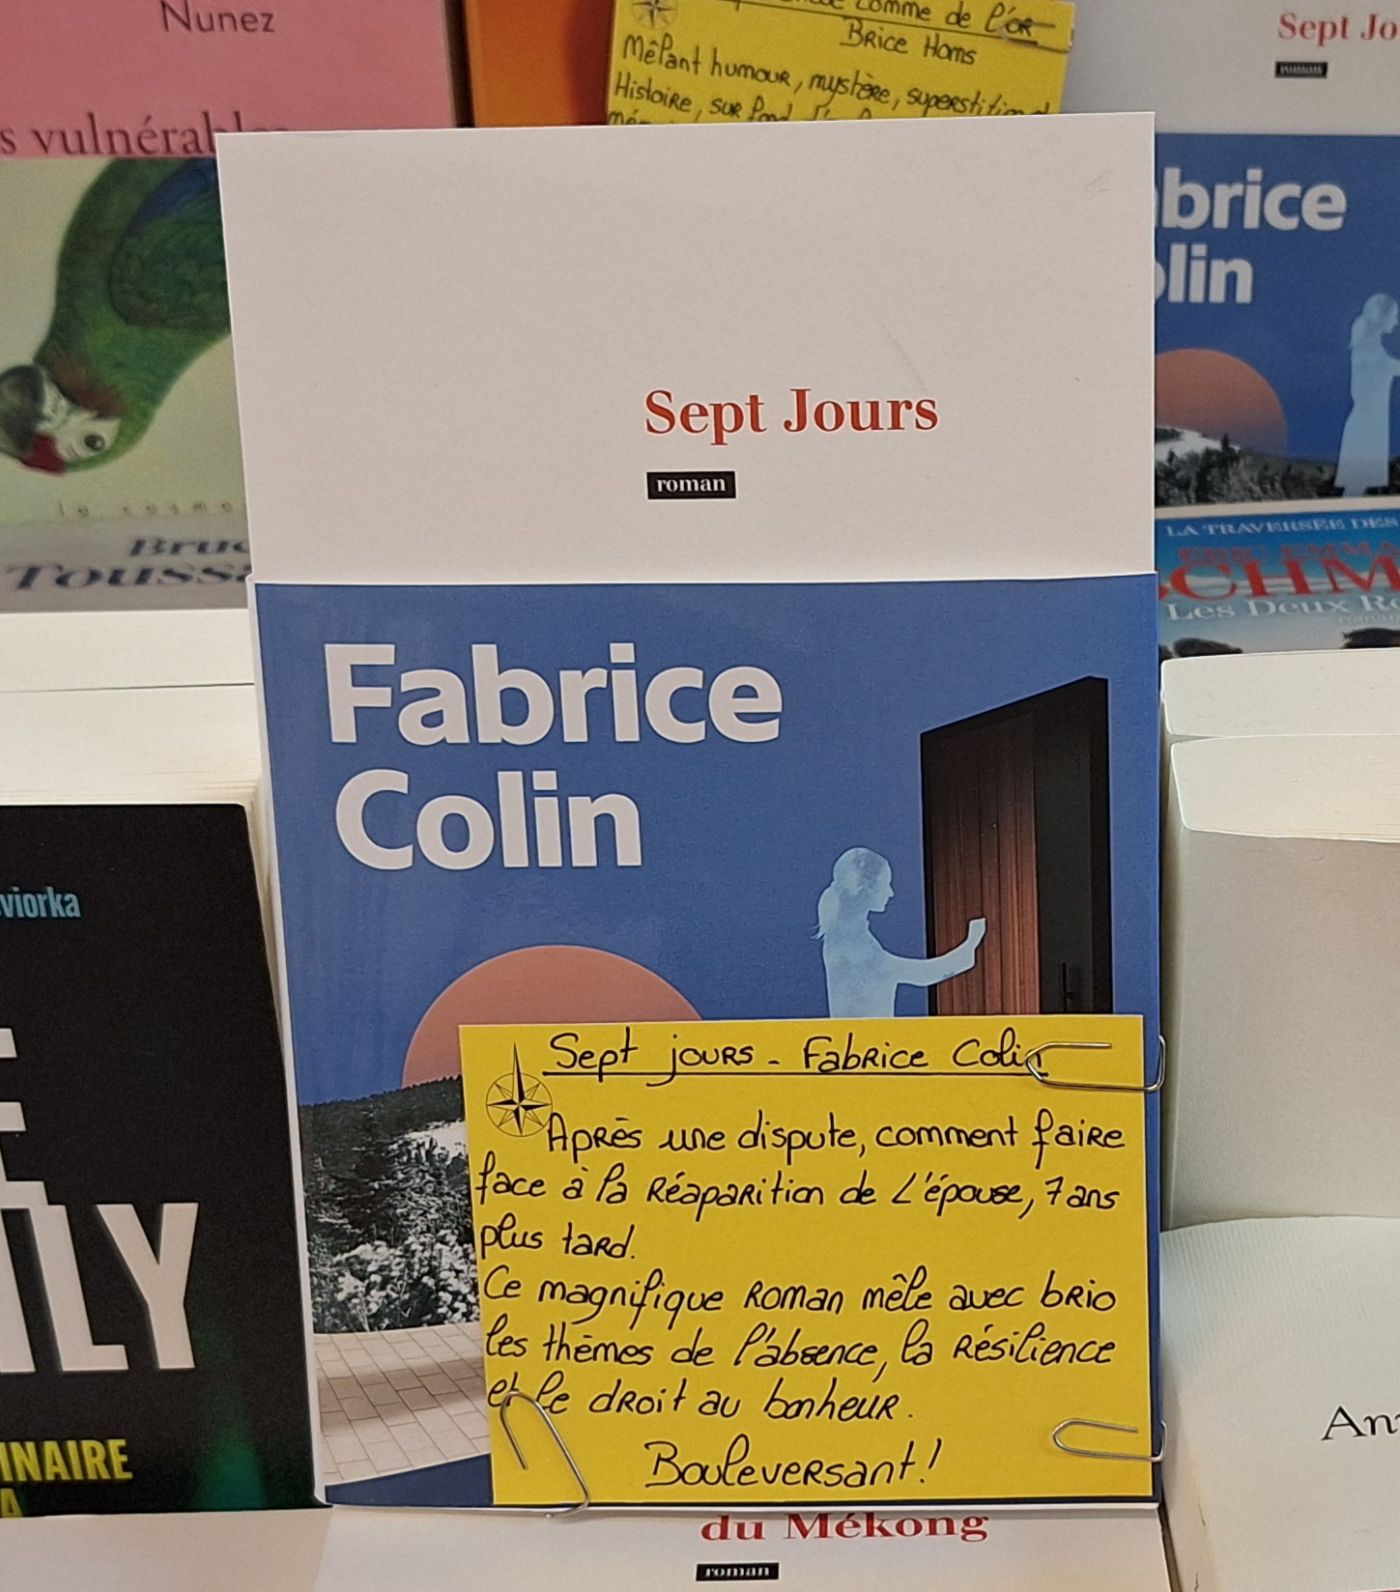 Nunez
vulnérables
comme de l'or
Brice Homs
Mêlant humour, mystère, superstition
Histoire, sur fond
Sept Jo
roman
brice
lin
LA TRAVERSÉE DES
SCHM
Les Deux Ro
le cosmo
Bruc
Toussa
Sept Jours
roman
Fabrice
Colin
viorka
ILY
INAIRE
Sept jours - Fabrice Colin
Après une dispute, comment faire
face à la Réaparition de L'épouse, 7 ans
plus tard.
Ce magnifique Roman mêle avec brio
les thèmes de l'absence, la Résilience
et le droit au bonheur.
Bouleversant!
An
du Mékong
roman